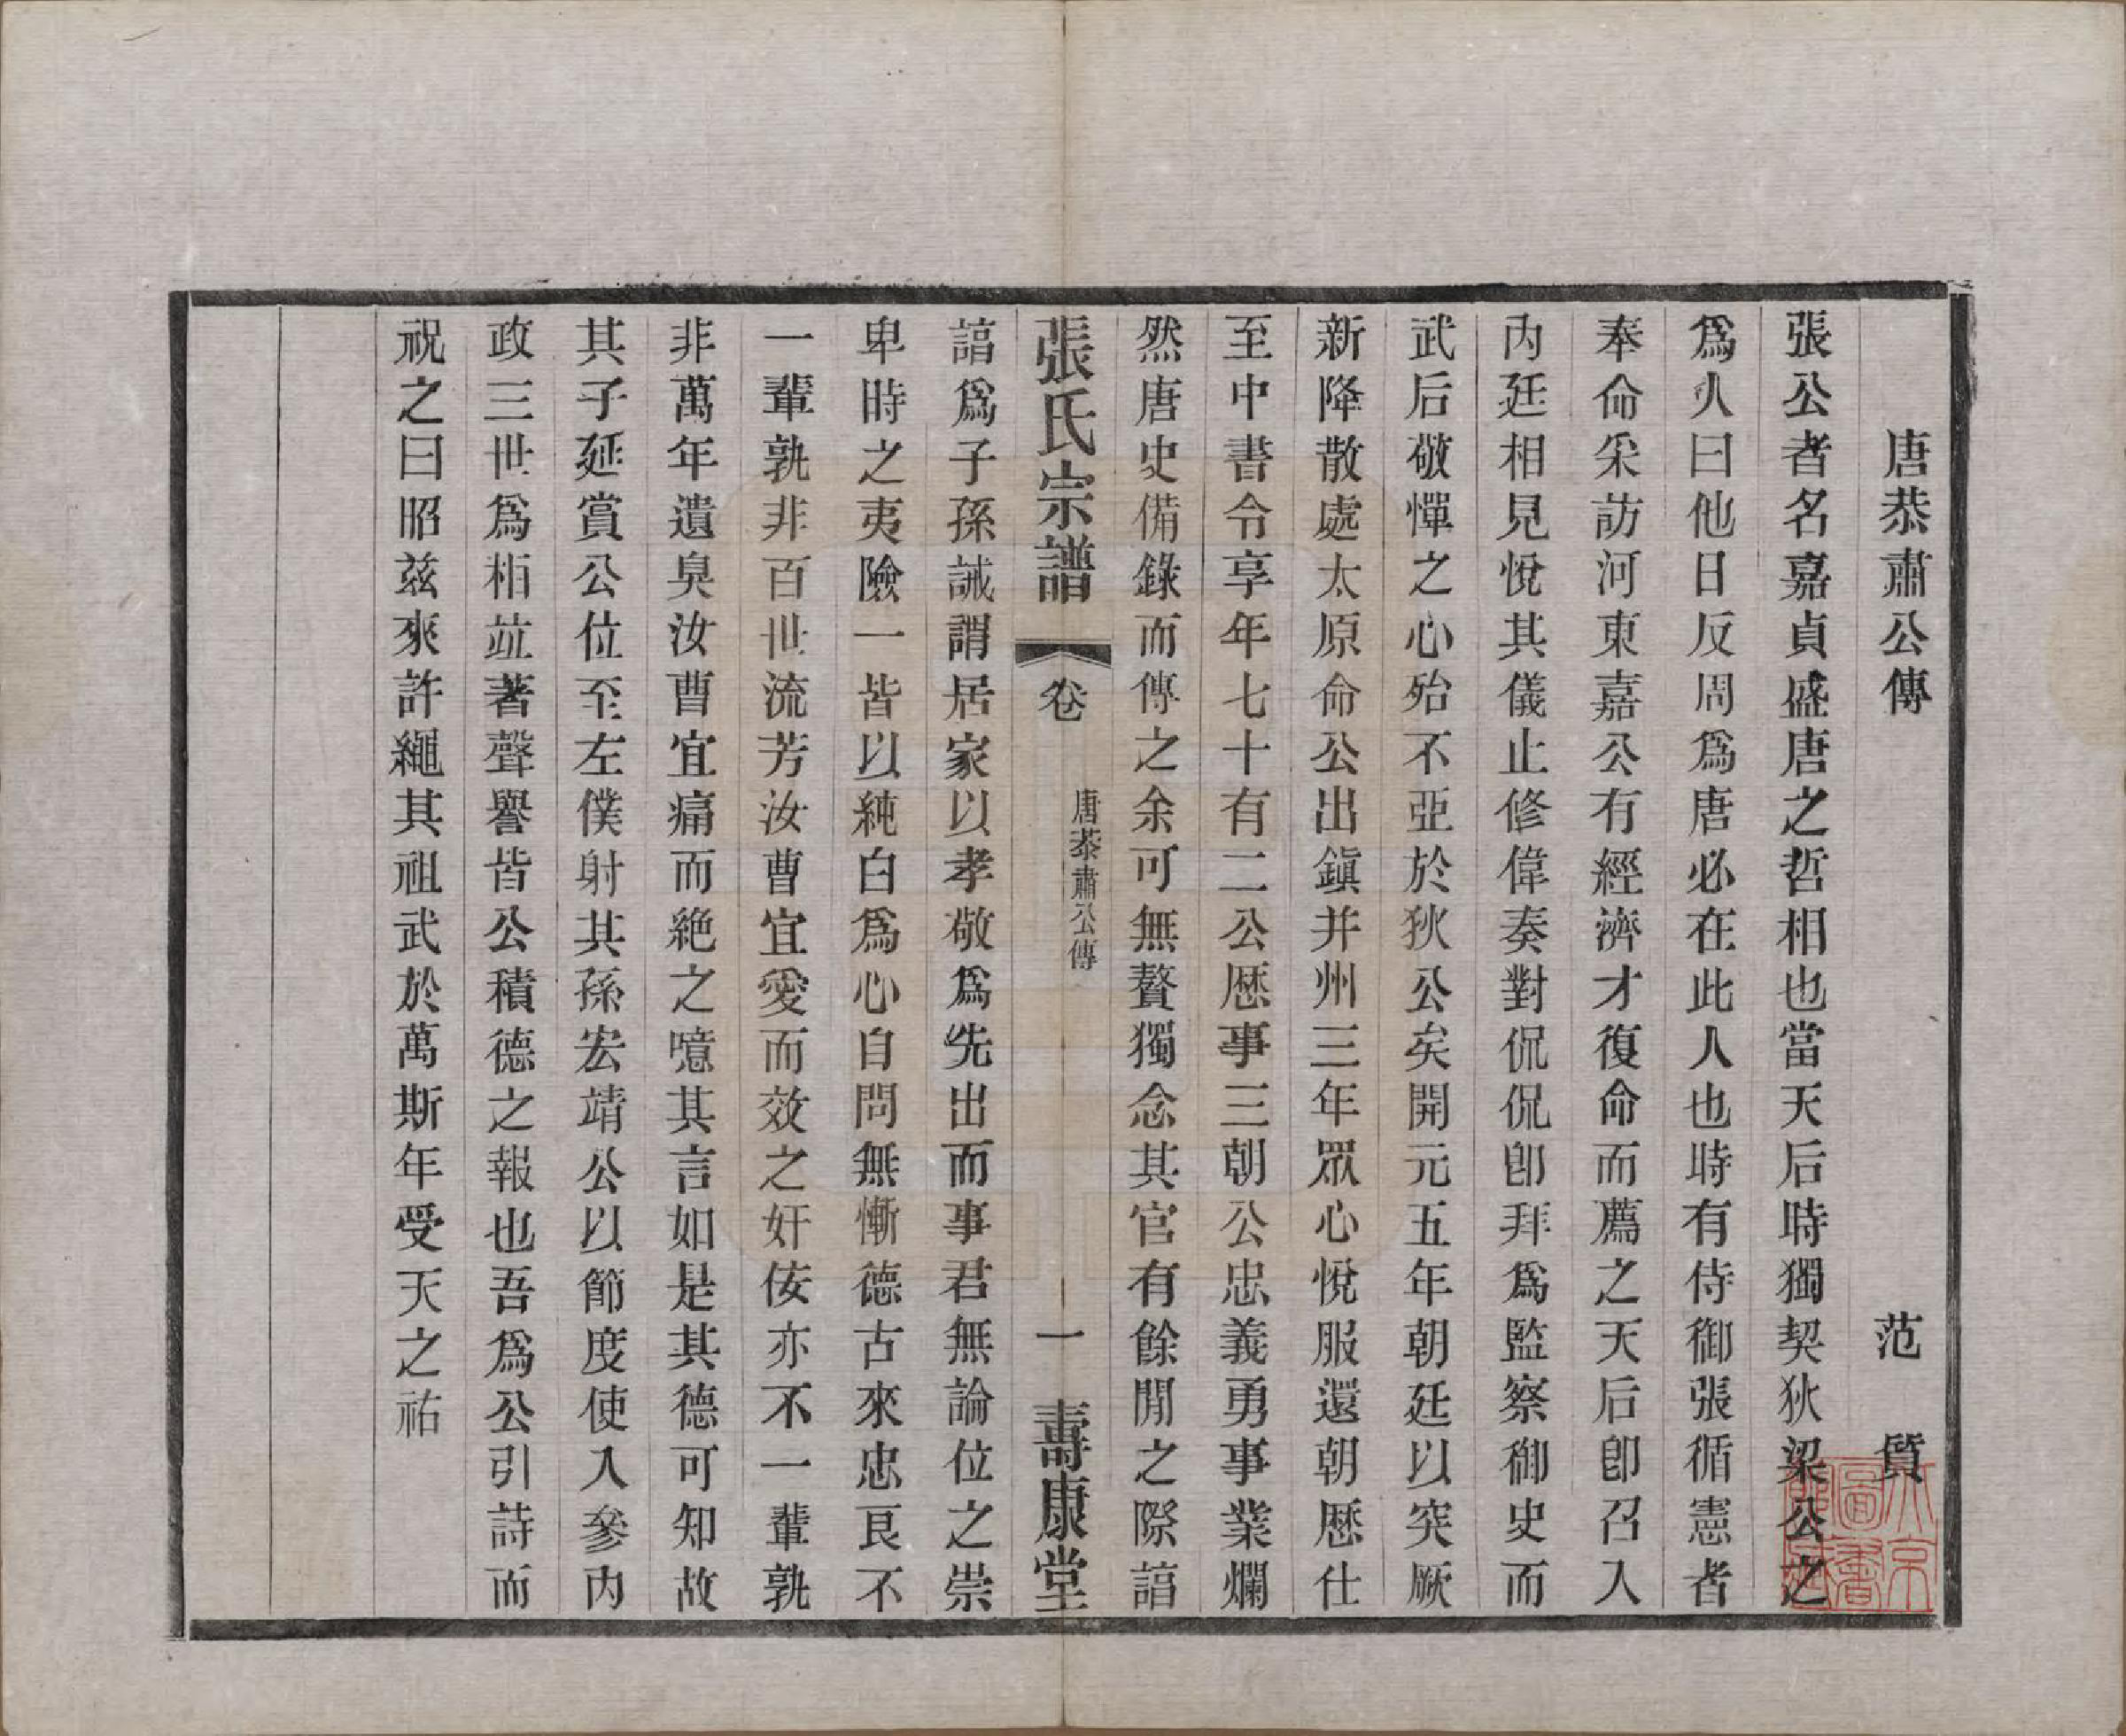 唐恭肅公傳　范質
張公者名嘉貞盛唐之哲相也當天后時獨契狄梁公之
爲人曰他日反周爲唐必在此人也時有侍御張循憲者
奉命采訪河東嘉公有經濟才復命而薦之天后卽召入
內廷相見悅其儀止修偉奏對侃侃卽拜爲監察御史而
武后敬憚之心殆不亞於狄公矣開元五年朝廷以突厥
新降散處太原命公出鎮并州三年眾心悅服還朝歷仕
至中書令享年七十有二公歷事三朝公忠義勇事業爛
然唐史備錄而傳之余可無贅獨念其官有餘閒之際諳
張氏宗譜　卷　唐恭肅公傳　一　壽康堂
諳爲子孫誡謂居家以孝敬爲先出而事君無論位之崇
卑時之夷險一皆以純白爲心自問無慚德古來忠良不
一輩孰非百世流芳汝曹宜愛而效之奸侫亦不一輩孰
非萬年遺臭汝曹宜痛而絶之噫其言如是其德可知故
其子延賞公位至左僕射其孫宏靖公以節度使入參內
政三世爲相竝著聲譽皆公積德之報也吾爲公引詩而
祝之曰昭兹來許繩其祖武於萬斯年受天之祜